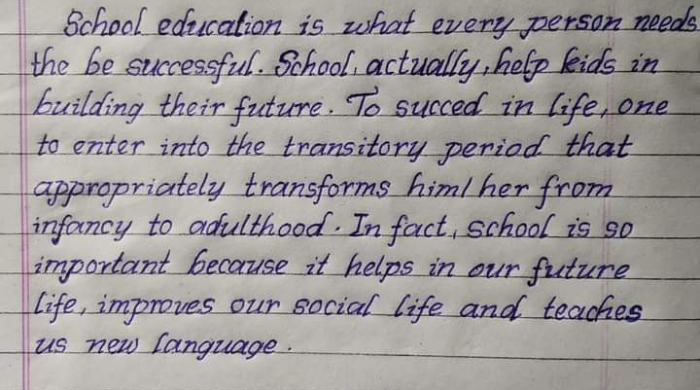 School education is what every person needs
the be successful. School, actually, help kids in
building their future. To succed in life, one
to enter into the transitory period that
appropriately transforms him/her from
infancy to adulthood. In fact, school is so
important because it helps in our future
life, improves our social life and teaches
us new language.